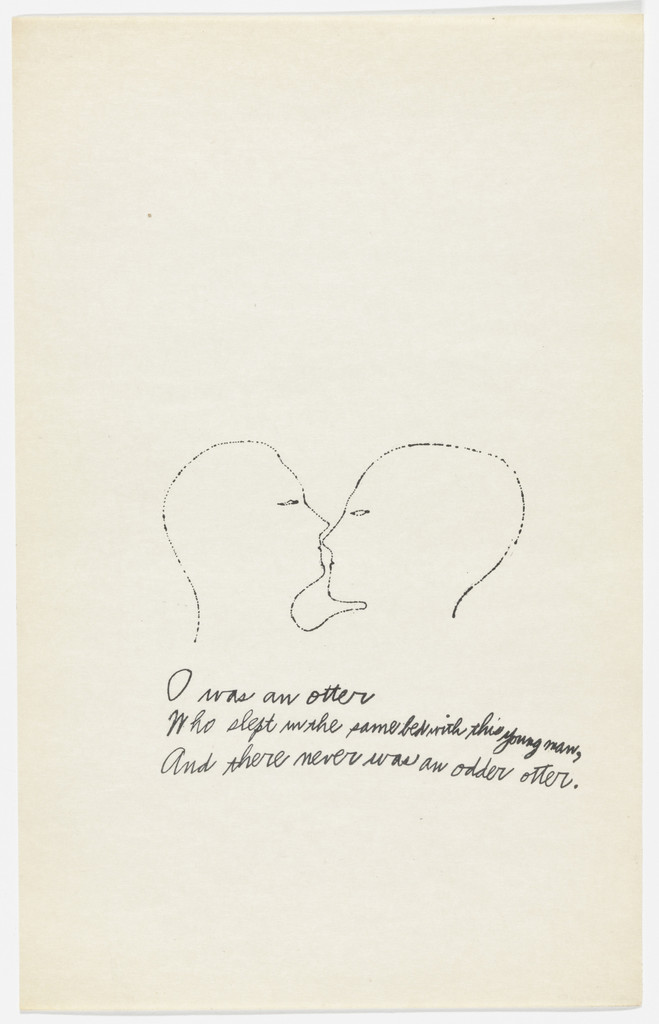 O was an otter
Who slept in the same bed with this young man,
And there never was an odder otter.